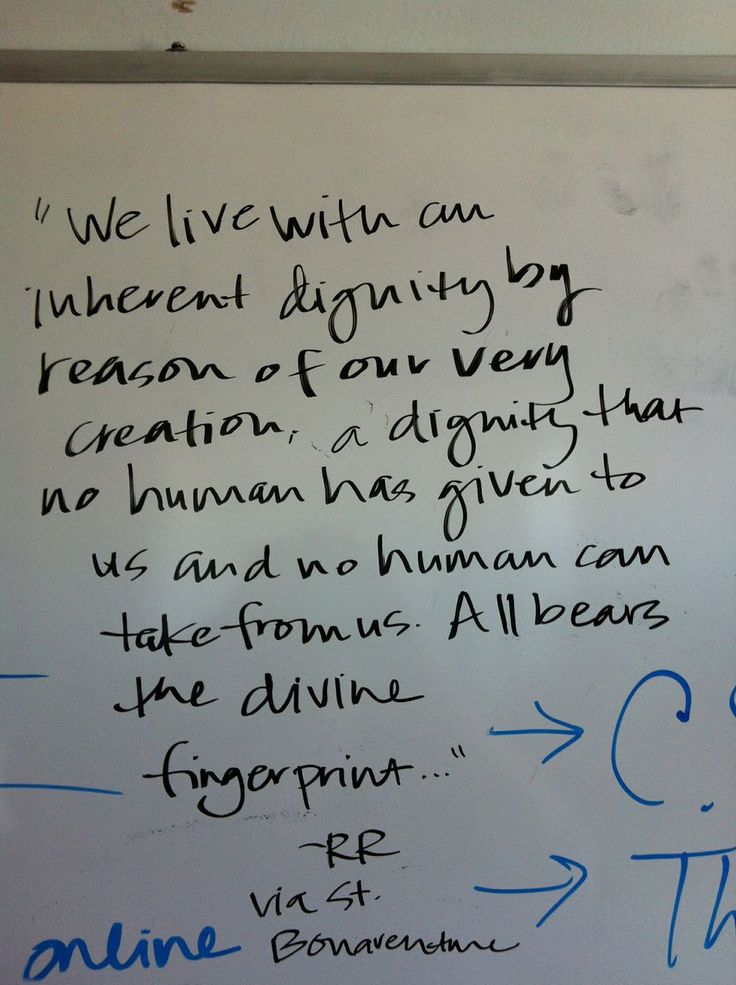 "We live with an
inherent dignity by
reason of our very
creation, a dignity that
no human has given to
us and no human can
take from us. All bears
the divine
fingerprint..."
~RR
via St.
Bonaventure
online
C.
Th